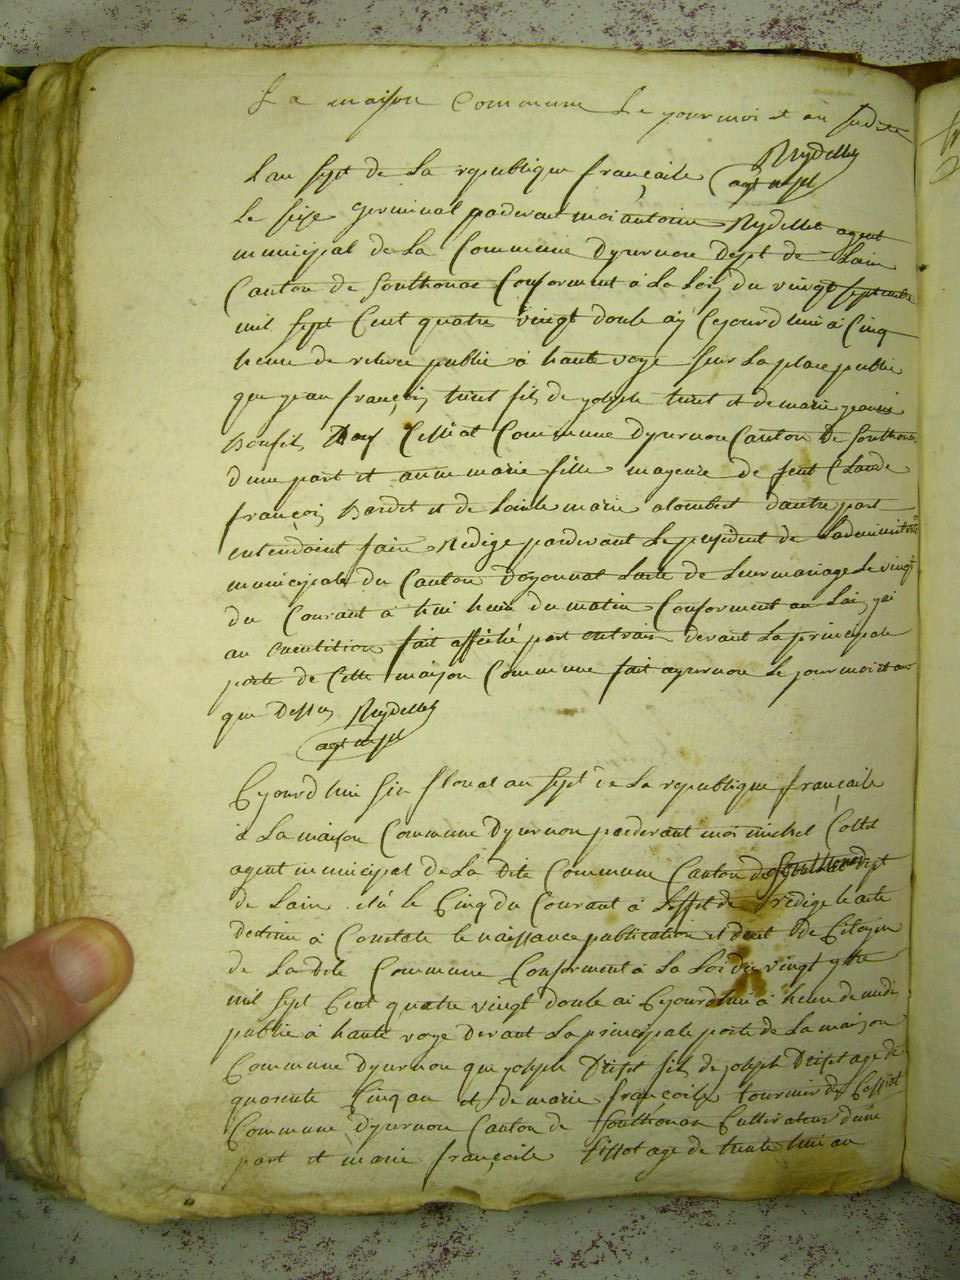 La maison Commune Le jour moi et an susdit
Lan sept de La republique françaile Reydellet
agt mpl
Le seize germinal pardevant moi antoine Reydellet agent
municipal de La Commune Dyzernon Dept de Lain
Canton de Sonthonas Conforment à La Loi du vingt septembre
mil sept Cent quatre vingt douse ai Cejourdhui à Cinq
heure de relevee publié à haute voye sur La place publi
que jean françois turet fils de joseph turet et de marie
d'une part et anne marie fille mayeure de feut Claude
françois Bardet et de Louise marie alombert dautre part
entendoint faire Redige pardevant Le president de Ladministon
municipale du Canton Doyonnat Lacte de Leur mariage Le vingt
du Courant à hui heure du matin Conforment au Loi jai
au exeutition fait affiché part extrais devant La principale
porte de Cette maison Commune fait ayzernon Le jour moi et an
que Dessus Reydellet
agt mpl
Cejourdhui six floreal an sept de La republique françaile
à La maison Commune Dyzernon pardevant moi michel Collet
agent municipal de La Dite Commune Canton de Sonthonas Dept
de Lain elu le Cinq du Courant à Leffet de redige le acte
destine à Constate le naissance publication et decet de Citoyen
de La Dite Commune Conforment à La Loi du vingt 7bre
mil sept Cent quatre vingt douse ai Cejourdhui à heure de midi
publie à haute voye devant La principale porte de La maison
Commune Dyzernon que joseph fils de joseph age de
quarente Cinq an et de marie françoise tournier de
Commune Dyzernon Canton de Sonthonas Cultivateur dune
part et marie françoise age de trente hui an